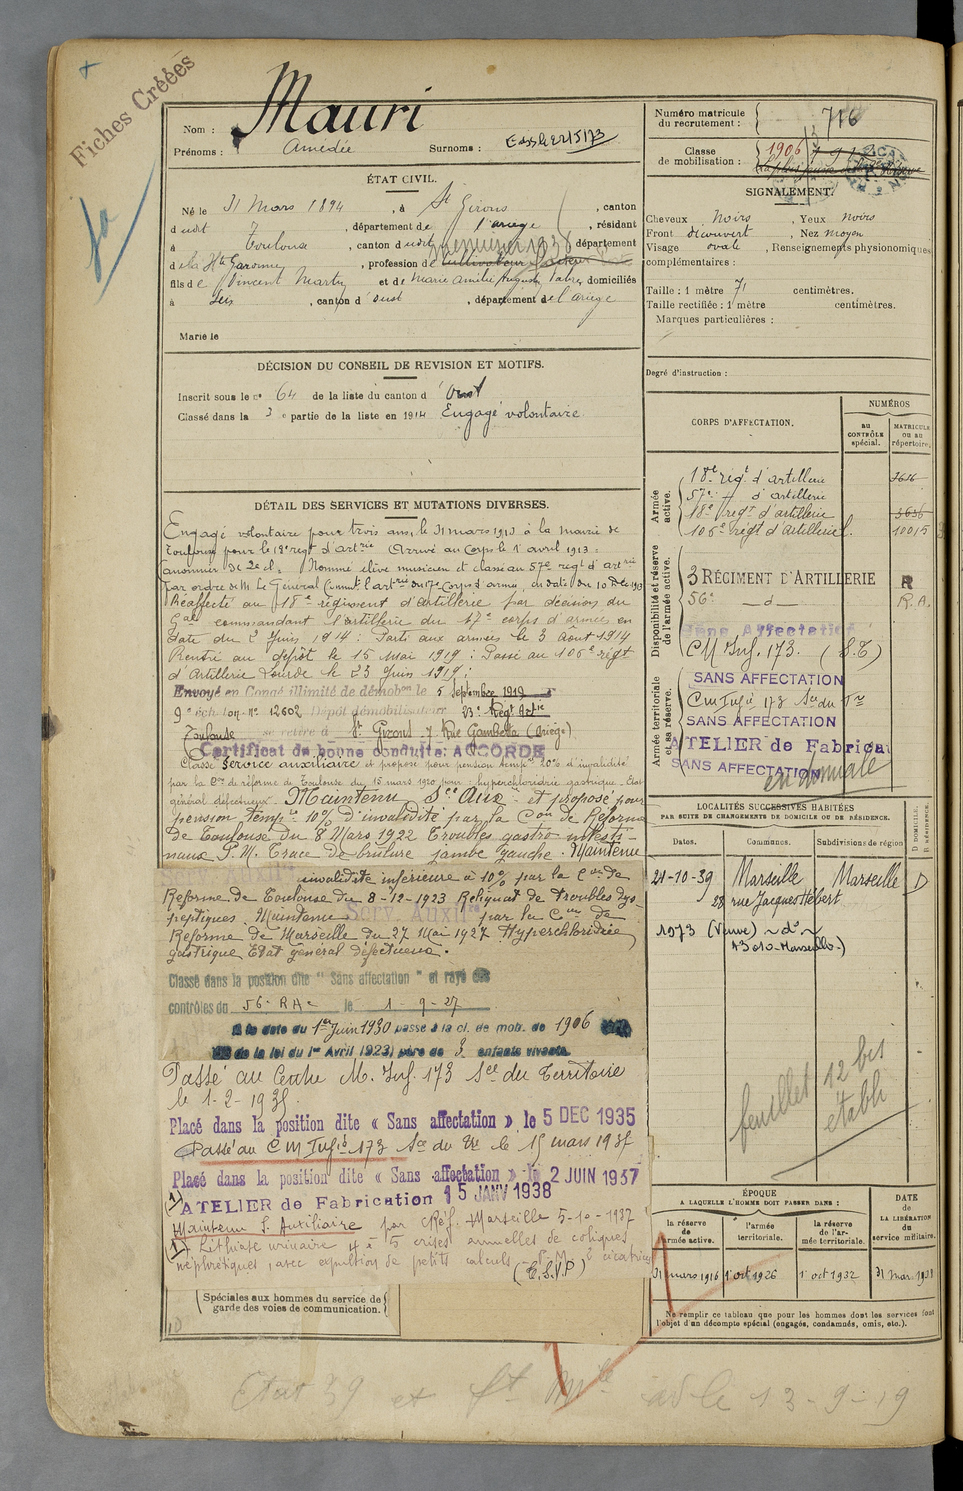 Fiches Créées
Nom : Mauri
Prénoms : Amedée Surnoms :
ÉTAT CIVIL.
Né le 31 Mars 1894, à St Girons, canton
dudit, département de l'ariège, résidant
à Toulouse, canton dudit, département
d la Hte Garonne, profession de menuisier 1938 cultivateur
fils de Vincent Martin et de Marie Amélie domiciliés
à, canton d dudit, département de l'ariège
Marié le
DÉCISION DU CONSEIL DE REVISION ET MOTIFS.
Inscrit sous le nº 64 de la liste du canton d
Classé dans la 3e partie de la liste en 1914 Engagé volontaire
DÉTAIL DES SERVICES ET MUTATIONS DIVERSES.
Engagé volontaire pour trois ans, le 31 mars 1913 à la mairie de
Toulouse pour le 18e regt d'artrie Arrivé au Corps le 1 avril 1913 =
Canonnier de 2e cl= Nommé élève musicien et classé au 57e regt d'artrie
Par ordre de M. Le Général Commt l'artrie du 17e Corps d'armée, du 10 Déc 1913
Réaffecté au 18e régiment d'artillerie par décision du
Gal commandant l'artillerie du 17e corps d'armée en
date du 2 Juin 1914 : Parti aux armées le 3 Août 1914
Rentré au dépôt le 15 Mai 1919 : Passé au 106e régt
d'Artillerie Lourde le 23 Juin 1919 :
Envoyé en Congé illimité de démobon le 5 Septembre 1919
9e échelon nº 12602 Dépôt démobilisateur 23e Regt Artie
Toulouse se retire à St Girons 7 Rue Gambetta (Ariège)
Certificat de bonne conduite: ACCORDÉ
Classé Service auxiliaire et proposé pour pension tempre 10% d'invalidité
par la Con de réforme de Toulouse du 15 mars 1920 pour : hyperchlorhydrie gastrique. Etat
général défectueux. Maintenu Sce Auxre et proposé pour
pension tempre 10% d'invalidité par la Con de Réforme
De Toulouse du 8 Mars 1922 Troubles gastro-intesti-
naux P.M. Trace de brûlure jambe gauche. Maintenu
Serv. Auxil invalidité inférieure à 10% par la Con de
Réforme de Toulouse du 8-12-1923 Reliquat de troubles dys-
peptiques. Maintenu Serv. Auxil par la Con de
Réforme de Marseille du 27 Mai 1927 Hyperchlorhydrie
gastrique Etat général défectueux.
Classé dans la position dite "Sans affectation" et rayé des
contrôles du 56e RA le 1-9-27
A la date du 1er Juin 1930 passé à la cl. de mob. de 1906
de la loi du 1er Avril 1923) père de 3 enfants vivants.
Passé au Centre M. Inf. 173 Sce du Territoire
le 1-2-1935.
Placé dans la position dite « Sans affectation » le 5 DEC 1935
Passé au C M Infie 173 Son du Tre le 15 mars 1937
Placé dans la position dite « Sans affectation » le 2 JUIN 1937
1) ATELIER de Fabrication 15 JANV 1938
Maintenu S. Auxiliaire par Cn Réf. Marseille 5-10-1937
1) Lithiase urinaire 4 à 5 crises annuelles de coliques
néphrétiques, avec expulsion de petits calculs P.M. 2 cicatrices
(T.S.V.P)
Spéciales aux hommes du service de
garde des voies de communication.
Etat 39 et
13-9-19
Numéro matricule
du recrutement : 716
Classe
de mobilisation : 1906
SIGNALEMENT.
Cheveux Noirs, Yeux noirs
Front découvert, Nez moyen
Visage ovale, Renseignements physionomiques
complémentaires :
Taille : 1 mètre 71 centimètres.
Taille rectifiée : 1 mètre centimètres.
Marques particulières :
Degré d'instruction :
CORPS D'AFFECTATION.
NUMÉROS
au
CONTRÔLE
spécial.
MATRICULE
OU AU
répertoire.
Armée
active.
18e régt d'artillerie 3636
57e d'artillerie
18e regt d'artillerie 3636
106e régt d'artillerie l. 10015
Disponibilité et réserve
de l'armée active.
3 RÉGIMENT D'ARTILLERIE R
56e -d- R.A.
Affectation
CM Inf. 173. (S.T)
Armée territoriale
et sa réserve.
SANS AFFECTATION
Cm Infie 173 Son du Tre
SANS AFFECTATION
ATELIER de Fabrica
SANS AFFECTATION
en domicile
LOCALITÉS SUCCESSIVES HABITÉES
PAR SUITE DE CHANGEMENTS DE DOMICILE OU DE RÉSIDENCE.
Dates.
Communes.
Subdivisions de région
D. DOMICILE.
R. RÉSIDENCE.
21-10-39 Marseille Marseille D
28 rue Jacques Hébert
1973 (Veuve) ~ dº ~
13010-Marseille-)
feuillet 12 bis
établi
ÉPOQUE
A LAQUELLE L'HOMME DOIT PASSER DANS :
la réserve
de
l'armée active.
l'armée
territoriale.
la réserve
de l'ar-
mée territoriale.
DATE
de
LA LIBÉRATION
du
service militaire.
31 mars 1916
1 oct 1926
1 oct 1932
31 Mar 1938
Ne remplir ce tableau que pour les hommes dont les services font
l'objet d'un décompte spécial (engagés, condamnés, omis, etc.).